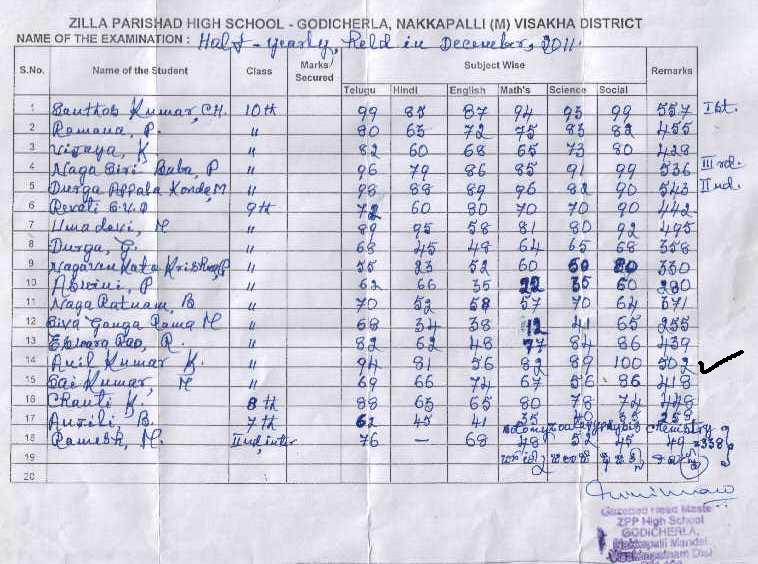 ZILLA PARISHAD HIGH SCHOOL - GODICHERLA, NAKKAPALLI (M) VISAKHA DISTRICT
NAME OF THE EXAMINATION : Half - yearly, Held in December, 2011.
S.No. Name of the Student Class Marks Secured Subject Wise Remarks
Telugu Hindi English Math's Science Social
1 Santhosh Kumar, CH. 10th 99 85 87 94 93 99 557 Ist.
2 Ramana, P. " 80 63 72 75 83 82 455
3 Vijaya, K " 82 60 68 65 73 80 428
4 Naga Siri Baba, P " 96 79 86 85 91 99 536 IIIrd.
5 Durga Appala Konda, M " 98 88 89 96 82 90 543 IInd.
6 Revati S.V.D 9th 72 60 80 70 70 90 442
7 Uma devi, M " 89 95 58 81 80 92 495
8 Durga, G. " 68 45 48 64 65 68 358
9 " 55 23 52 60 50 80 330
10 Aswini, P " 62 66 35 22 35 60 280
11 Naga Ratnam, B " 70 52 58 57 70 64 371
12 Siva Ganga Rama M " 68 34 38 12 41 65 255
13 Eswara Rao, R. " 82 62 48 77 84 86 439
14 Anil Kumar K. " 94 81 56 82 89 100 502 ✓
15 Sai Kumar, M " 69 66 74 67 56 86 418
16 Chanti K. 8th 88 63 65 80 78 74 448
17 B. 7th 62 45 41 35 40 35 258
Zoology physics chemistry
18 Ramesh, M. IInd, inter 76 - 68 48 52 45 49 =338
19
20
ZPP High School
GODICHERLA,
Nakkapalli Mandal
Visakhapatnam Dist